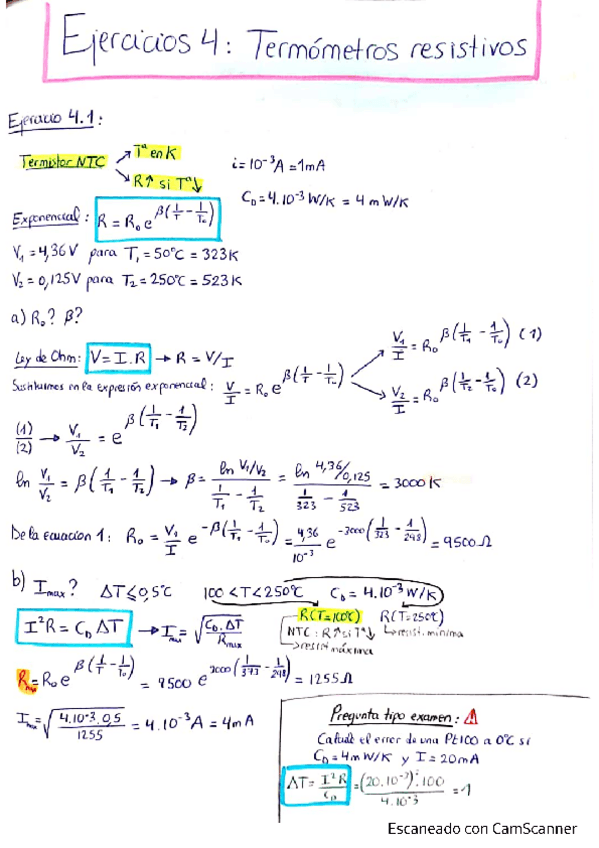 Ejercicios 4: Termómetros resistivos
Ejercicio 4.1:
Termistor NTC → Tª en K
→ R↑ si Tª↓
i = 10⁻³A = 1mA
C_D = 4.10⁻³ W/K = 4 mW/K
Exponencial: R = R₀ e^β(1/T - 1/T₀)
V₁ = 4,36V para T₁ = 50ºC = 323K
V₂ = 0,125V para T₂ = 250ºC = 523K
a) R₀? β?
Ley de Ohm: V = I.R → R = V/I
Sustituimos en la expresión exponencial: V/I = R₀ e^β(1/T - 1/T₀)
V₁/I = R₀ e^β(1/T₁ - 1/T₀) (1)
V₂/I = R₀ e^β(1/T₂ - 1/T₀) (2)
(1)/(2) → V₁/V₂ = e^β(1/T₁ - 1/T₂)
ln V₁/V₂ = β(1/T₁ - 1/T₂) → β = (ln V₁/V₂)/(1/T₁ - 1/T₂) = (ln 4,36/0,125)/(1/323 - 1/523) = 3000 K
De la ecuación 1: R₀ = V₁/I e^-β(1/T₁ - 1/T₀) = 4,36/10⁻³ e^-3000(1/323 - 1/298) = 9500Ω
b) I_max? ΔT ≤ 0,5ºC 100 < T < 250ºC C_D = 4.10⁻³ W/K
I²R = C_D ΔT → I_max = √(C_D . ΔT / R_max)
R(T=100ºC) R(T=250ºC)
NTC: R↑ si T↓ → resist. mínima
→ resist máxima
R_max = R₀ e^β(1/T - 1/T₀) = 9500 e^3000(1/373 - 1/298) = 1255Ω
I_max = √(4.10⁻³.0,5 / 1255) = 4.10⁻³A = 4mA
Pregunta tipo examen: ⚠
Calcule el error de una Pt100 a 0ºC si
C_D = 4mW/K y I = 20mA
ΔT = I²R/C_D = (20.10⁻³)².100 / 4.10⁻³ = 1
Escaneado con CamScanner